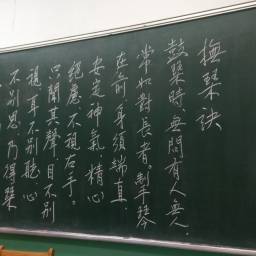 撫琴訣
鼓琴時,無問有人無人,
常如對長者,掣琴
在前,身須端直,
安定神氣,精心
絕慮,不視右手。
只聞其聲,目不別
視,耳不別聽,心
不別思,乃得琴